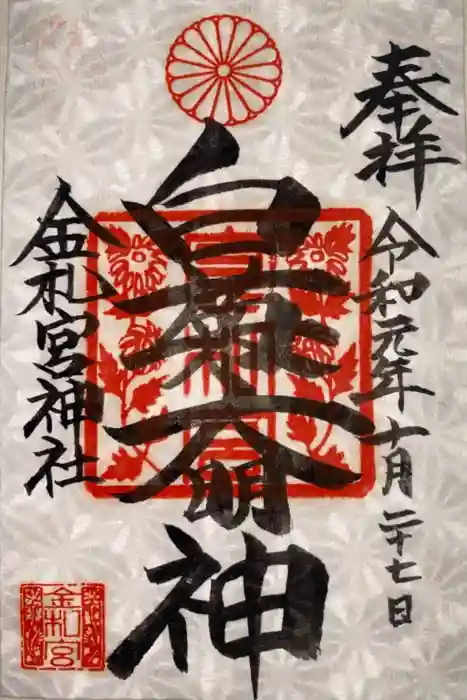 奉拝
令和元年十月二十七日
白菊大明神
金札宮神社
金札宮